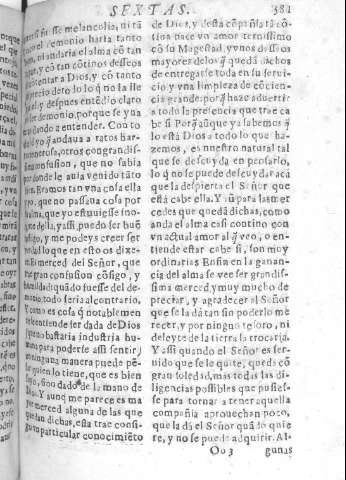 SEXTAS. 381
se melancolia, ni tã
el demonio haria tanto
ni andaria el alma cõ tan
y cõ tan cõtinos desseos
contentar a Dios, y cõ tanto
precio de todo lo q̃ no la lle
a el, y despues entẽdio claro
ser demonio, porque se yua
do a entender. Con to
do yo q̃ andaua a ratos har
temerosa, otros con grandis
confusion, que no sabia
por donde le auia venido tãto
Eramos tan vna cosa ella
yo, que no passaua cosa por
alma, que yo estuuiesse ino
della, y assi puedo ser buẽ
testigo, y me podeys creer ser
verdad lo que en esto os dixe
merced del Señor, que
gran confusion cõsigo, y
humildad quãdo fuesse del de
monio todo seria al contrario.
Y como es cosa q̃ notablemen
te entiende ser dada de Dios
no bastaria industria hu
para poderse assi sentir)
ninguna manera puede pẽ
quien lo tiene, que es bien
suyo, sino dado de la mano de
Dios. Y aunq̃ me parece es ma
yor merced alguna de las que
quedan dichas, esta trae consi
go vn particular conocimiẽto
de Dios, y desta cõpañia tã cõ
tina nace vn amor ternissimo
cõ su Magestad, y vnos desseos
mayores delos q̃ quedã dichos
de entregarse toda en su serui
cio, y vna limpieza de cõcien
cia grande: por q̃ haze aduertir
a todo la presencia que trae ca
be si. Porq̃ aũque ya sabemos q̃
lo està Dios a todo lo que ha-
zemos, es nuestro natural tal
que se descuyda en pensarlo,
lo q̃ no se puede descuydar acà
que la despierta el Señor que
està cabe ella. Y aũ para las mer
cedes que quedã dichas, como
anda el alma casi contino con
vn actual amor al q̃ veo, o en-
tiende estar cabe si, son muy
ordinarias. En fin en la ganan-
cia del alma se vee ser grandis-
sima merced, y muy mucho de
preciar, y agradecer al Señor
que se la dà tan sin poderlo me
recer, y por ningun tesoro, ni
deleyte de la tierra la trocaria.
Y assi quando el Señor es ser-
uido que se le quite, queda cõ
gran soledad, mas todas las di-
ligencias possibles que pusies-
se para tornar a tener aquella
compañia aprouechan poco,
que la dà el Señor quãdo quie
re, y no se puede adquirir. Al-
Oo 3 gunas